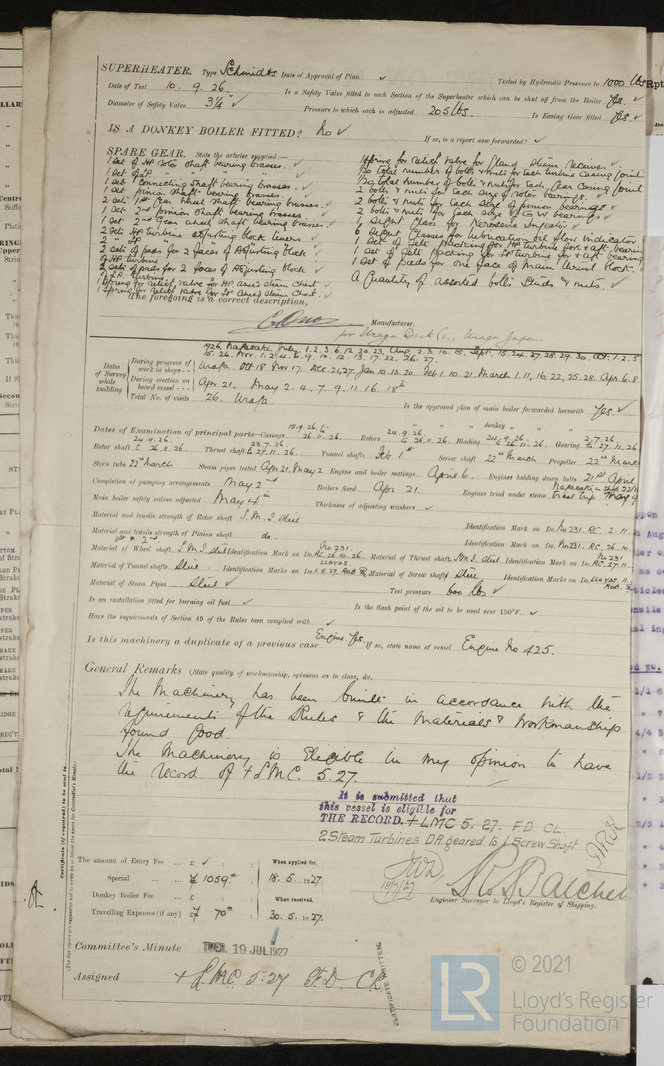 SUPERHEATER. Type Schmidts Date of Approval of Plan ✓ Tested by Hydraulic Pressure to 1000 lbs
Date of Test 10. 9. 26. Is a Safety Valve fitted to each Section of the Superheater which can be shut off from the Boiler Yes. ✓
Diameter of Safety Valve 3¼" ✓ Pressure to which each is adjusted 205 lbs. Is Easing Gear fitted Yes. ✓
IS A DONKEY BOILER FITTED? No ✓ If so, is a report now forwarded? ✓
SPARE GEAR. State the articles supplied:—
1 Set of HP Rotor shaft bearing brasses. ✓
1 Set of LP " " " "
1 Set Connecting shaft bearing brasses. ✓
1 Set pinion shaft bearing brasses
2 Sets 1st Gear wheel shaft bearing brasses. ✓
1 Set 2nd pinion shaft bearing brasses
1 Set 2nd Gear wheel shaft bearing brasses. ✓
2 Sets HP turbine adjusting block liners ✓
2 " LP " " " "
2 Sets of pads for 2 faces of Adjusting block
of HP turbine
2 Sets of pads for 2 faces of Adjusting block ✓
of LP. turbine
1 Spring for relief valve for HP steam chest
1 Spring for relief valve for LP steam chest ✓
1 Spring for relief valve for steam Receiver ✓
120 total number of bolts & nuts for each turbine casing joint
120 total number of bolts & nuts for each Gear casing joint
2 bolts & nuts for each size of rotor bearings.
2 bolts & nuts for each size of pinion bearings ✓
2 bolts & nuts for each size of G W bearings ✓
6 Sight Glasses for lubricating oil flow indicator
1 Set of felt packing for HP turbine for & aft bearing
1 Set of felt packing for LP turbine for & aft bearing
1 Set of pads for one face of Main thrust block.
A Quantity of assorted bolts studs & nuts. ✓
The foregoing is a correct description,
Manufacturer.
for Uraga Dock Co., Uraga Japan
Dates of Survey while building
During progress of work in shops - -
1926. Nagasaki July. 1. 2. 3. 6. 12. 20. 23. Aug. 2. 3. 10. 15. Sept. 15. 24. 27. 28. 29. 30. Oct. 1. 2. 5
15. 26. Nov. 1. 2. 4. 6. 9. 10. 12. 13. 17. 22. 26. 27.
Uraga. Oct 18 Nov 17. Dec. 21, 27. Jan 10. 13. 20. Feb 1. 10. 21. March 1. 11, 16, 22, 25. 28. Apr 6. 8.
During erection on board vessel - - -
Apr 21. May 2. 4. 7. 9. 11. 16. 18th
Total No. of visits 26. Uraga. Is the approved plan of main boiler forwarded herewith Yes. ✓
" " " donkey " " " ✓
Dates of Examination of principal parts—Casings 15.9.26. to 26.11.26. Rotors 24.9.26. to 26.11.26. Blading 24.9.26. to 26.11.26. Gearing 2.7.26. to 27.11.26.
Rotor shaft 24.9.26. to 26.11.26. Thrust shaft 23.7.26. to 27.11.26 Tunnel shafts Feb 1st Screw shaft 22nd March Propeller 22nd March
Stern tube 22nd March Steam pipes tested Apr 21. May 2 Engine and boiler seatings. April 6. Engines holding down bolts 21st April
Completion of pumping arrangements May 2nd Boilers fixed Apr 21. Engines tried under steam Trial trip May 9
Main boiler safety valves adjusted May 4th Thickness of adjusting washers ✓
Material and tensile strength of Rotor shaft S. M. I. steel Identification Mark on Do. No 231. RC. 2. 11.
Material and tensile strength of Pinion shaft do. Identification Mark on Do. No 231. RC. 26. 10.
Material of Wheel shaft 1st & 2nd S. M. I steel Identification Mark on Do. No 231. RC. 26. 10. 26. Material of Thrust shaft S. M. I. steel Identification Mark on Do. No 231. RC. 27. 11.
Material of Tunnel shafts Steel Identification Marks on Do. LLOYDS Material of Screw shaft Steel Identification Marks on Do. LLOYDS
Material of Steam Pipes Steel ✓ Test pressure 600 lbs ✓
Is an installation fitted for burning oil fuel ✓ Is the flash point of the oil to be used over 150°F. ✓
Have the requirements of Section 49 of the Rules been complied with ✓
Is this machinery a duplicate of a previous case Engine. Yes. If so, state name of vessel Engine No 425.
General Remarks (State quality of workmanship, opinions as to class, &c.
The Machinery has been built in accordance with the
requirements of the Rules & the Materials & Workmanship
found good.
The Machinery is Eligible in my opinion to have
the record of + LMC. 5. 27.
It is submitted that
this vessel is eligible for
THE RECORD. + LMC 5. 27. F.D. CL.
2 Steam Turbines D.R. geared to 1 Screw Shaft
18/7/27
Engineer Surveyor to Lloyd's Register of Shipping.
The amount of Entry Fee ... £ ✓ : When applied for,
Special ... ¥ 1059.00 : 18. 5. 1927
Donkey Boiler Fee ... £ : When received,
Travelling Expenses (if any) ¥ 70.00 : 30. 5. 1927.
Committee's Minute TUES. 19 JUL 1927
Assigned + LMC 5. 27 F.D. CL
CERTIFICATE WRITTEN
Certificate (if required) to be sent to
(The Surveyors are requested not to write on or below the space for Committee's Minute.)
LR
© 2021
Lloyd's Register
Foundation